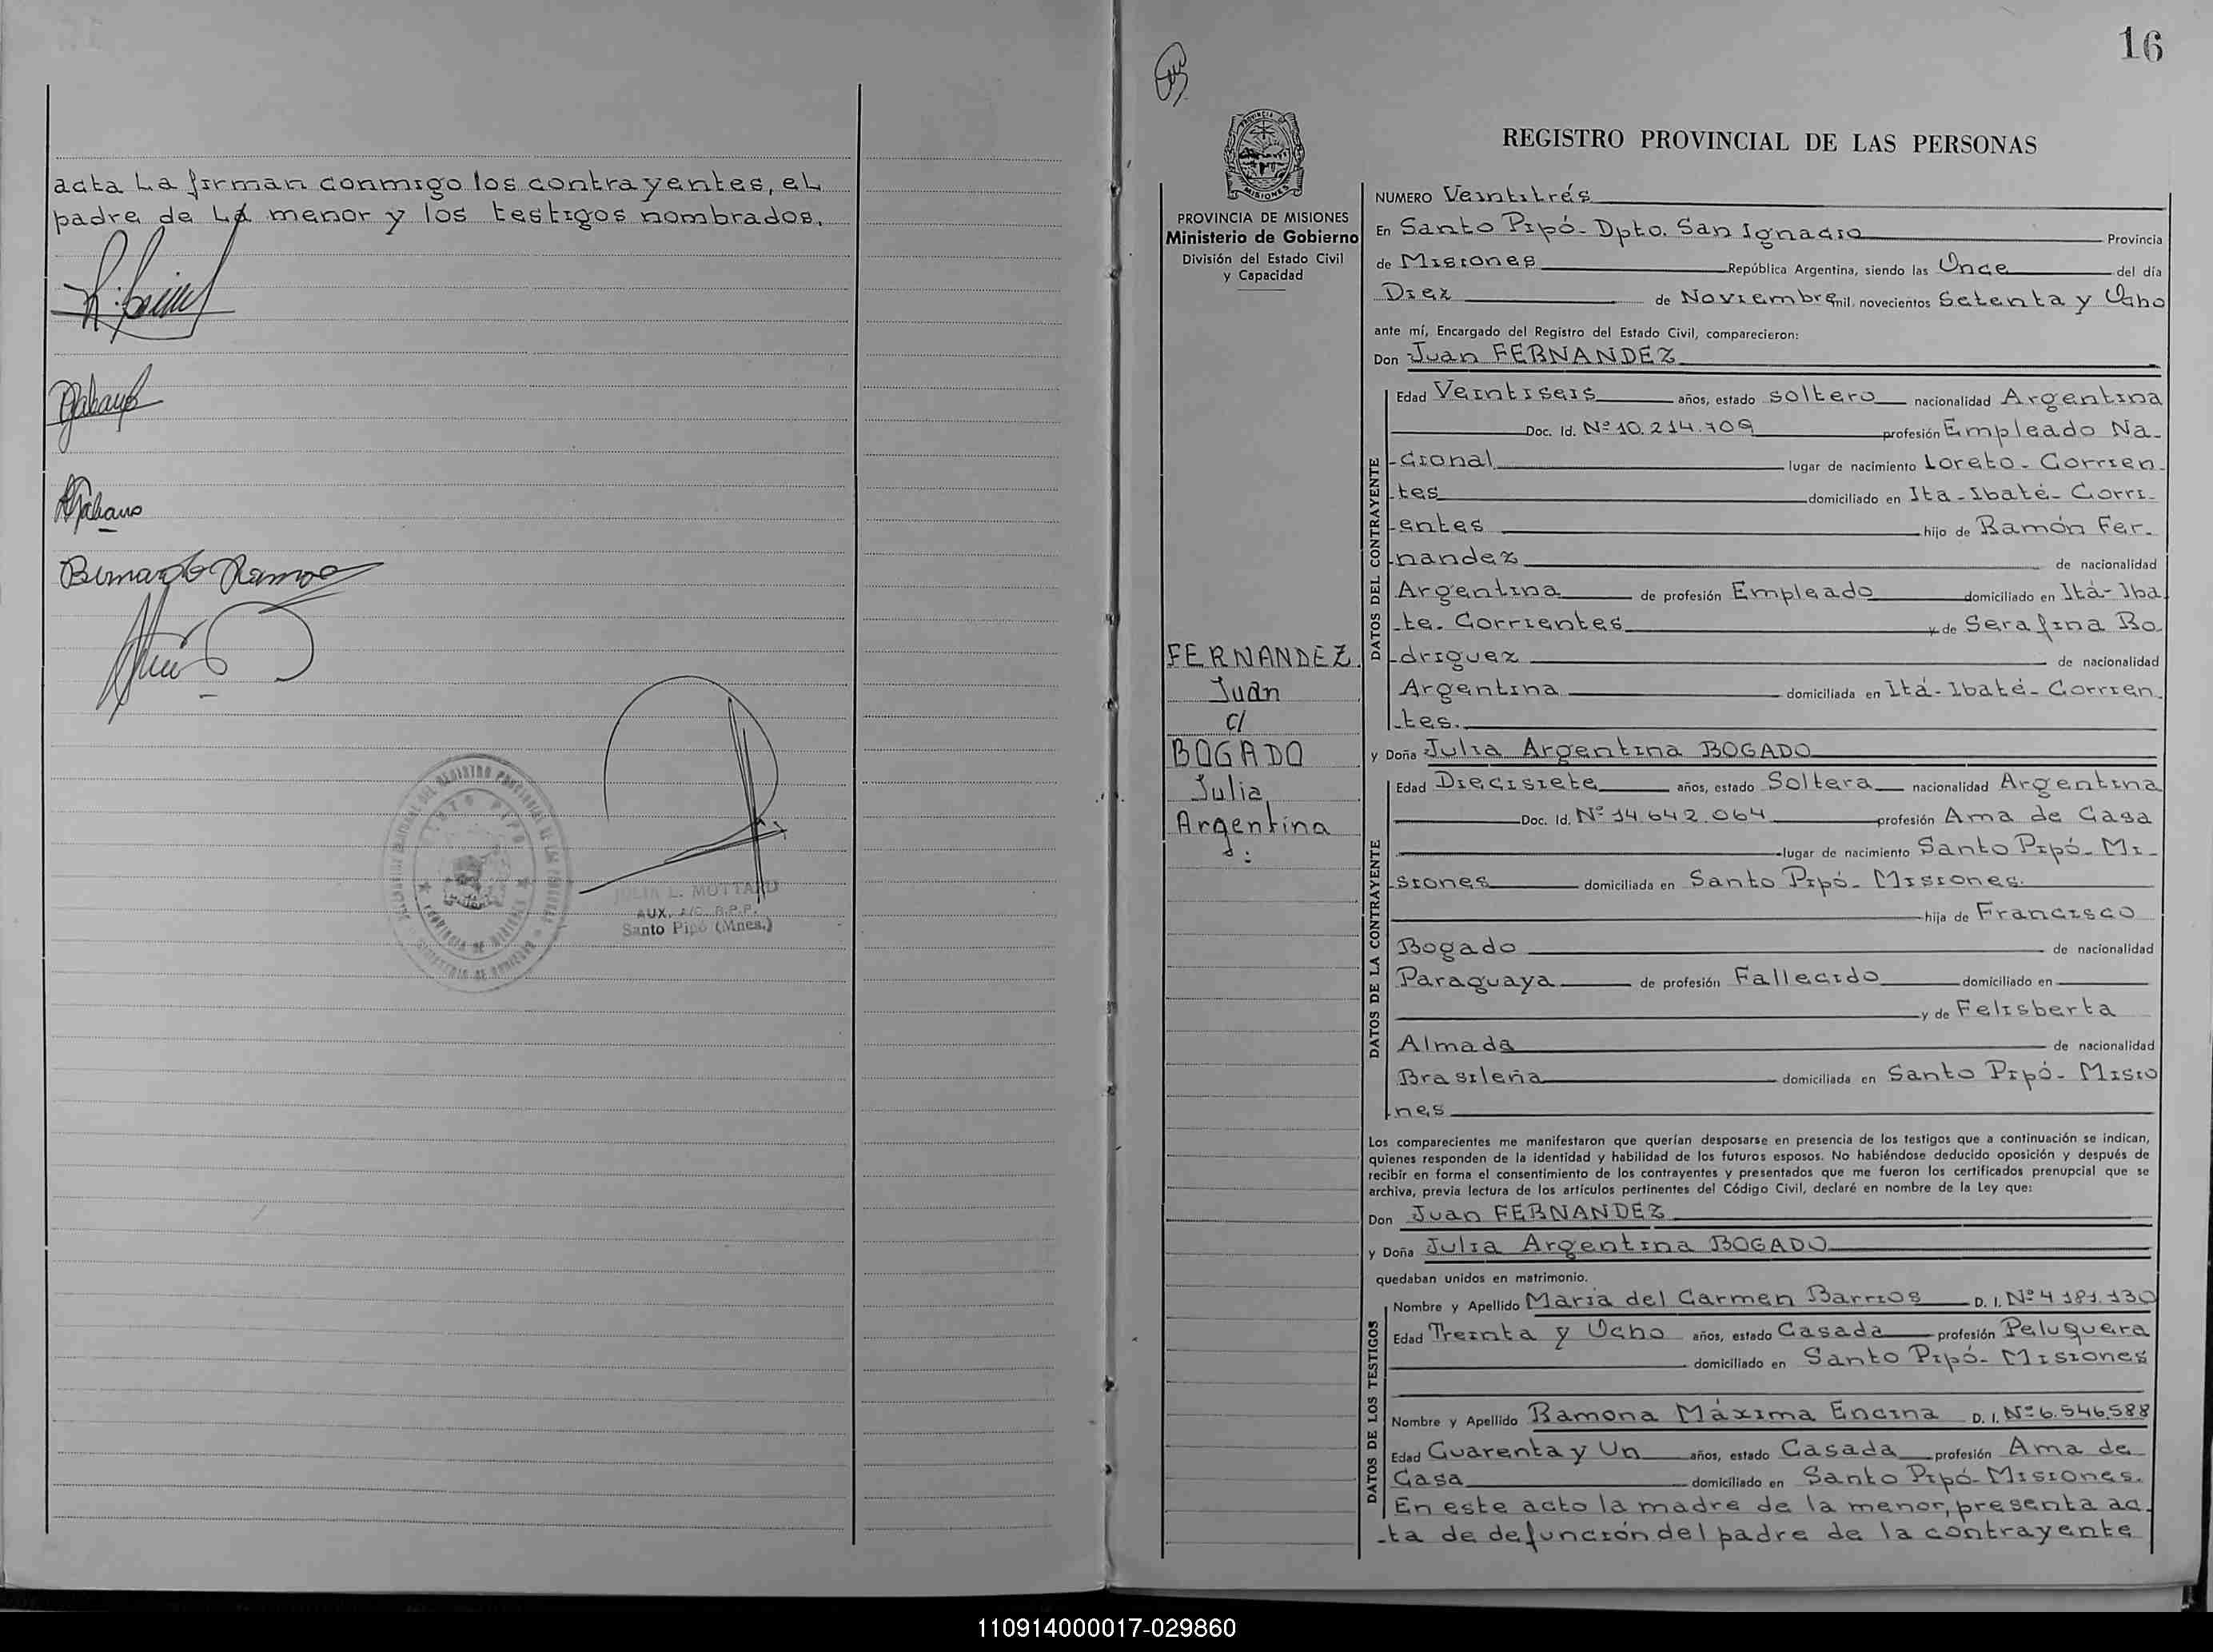 acta La firman conmigo los contrayentes, el
padre de La menor y los testigos nombrados.
Bernardo Ramos
JULIA L. MOTTARD
AUX. A/C. R.P.P.
Santo Pipó (Mnes.)
16
PROVINCIA DE MISIONES
Ministerio de Gobierno
División del Estado Civil
y Capacidad
FERNANDEZ
Juan
c/
BOGADO
Julia
Argentina
REGISTRO PROVINCIAL DE LAS PERSONAS
NUMERO Veintitrés
En Santo Pipó- Dpto. San Ignacio Provincia
de Misiones República Argentina, siendo las Once del día
Diez de Noviembre mil novecientos Setenta y Ocho
ante mí, Encargado del Registro del Estado Civil, comparecieron:
Don Juan FERNANDEZ
DATOS DEL CONTRAYENTE
Edad Veintiseis años, estado soltero nacionalidad Argentina
Doc. Id. Nº 10.214.709 profesión Empleado Na-
-cional lugar de nacimiento Loreto- Corrien-
-tes domiciliado en Ita-Ibaté- Corri-
-entes hijo de Ramón Fer-
-nandez de nacionalidad
Argentina de profesión Empleado domiciliado en Itá-Iba
-te- Corrientes y de Serafina Ro-
-driguez de nacionalidad
Argentina domiciliada en Itá-Ibaté- Corrien-
-tes.
y Doña Julia Argentina BOGADO
DATOS DE LA CONTRAYENTE
Edad Diecisiete años, estado Soltera nacionalidad Argentina
Doc. Id. Nº 14.642.064 profesión Ama de Casa
lugar de nacimiento Santo Pipó- Mi-
siones domiciliada en Santo Pipó- Misiones.
hija de Francisco
Bogado de nacionalidad
Paraguaya de profesión Fallecido domiciliado en
y de Felisberta
Almada de nacionalidad
Brasileña domiciliada en Santo Pipó- Misio
-nes
Los comparecientes me manifestaron que querían desposarse en presencia de los testigos que a continuación se indican,
quienes responden de la identidad y habilidad de los futuros esposos. No habiéndose deducido oposición y después de
recibir en forma el consentimiento de los contrayentes y presentados que me fueron los certificados prenupcial que se
archiva, previa lectura de los artículos pertinentes del Código Civil, declaré en nombre de la Ley que:
Don Juan FERNANDEZ
y Doña Julia Argentina BOGADO
quedaban unidos en matrimonio.
DATOS DE LOS TESTIGOS
Nombre y Apellido Maria del Carmen Barrios D. I. Nº 4 181.130
Edad Treinta y Ocho años, estado Casada profesión Peluquera
domiciliado en Santo Pipó- Misiones
Nombre y Apellido Ramona Máxima Encina D. I. Nº 6.546.588
Edad Cuarenta y Un años, estado Casada profesión Ama de
Casa domiciliado en Santo Pipó-Misiones.
En este acto la madre de la menor, presenta ac-
-ta de defunción del padre de la contrayente
110914000017-029860